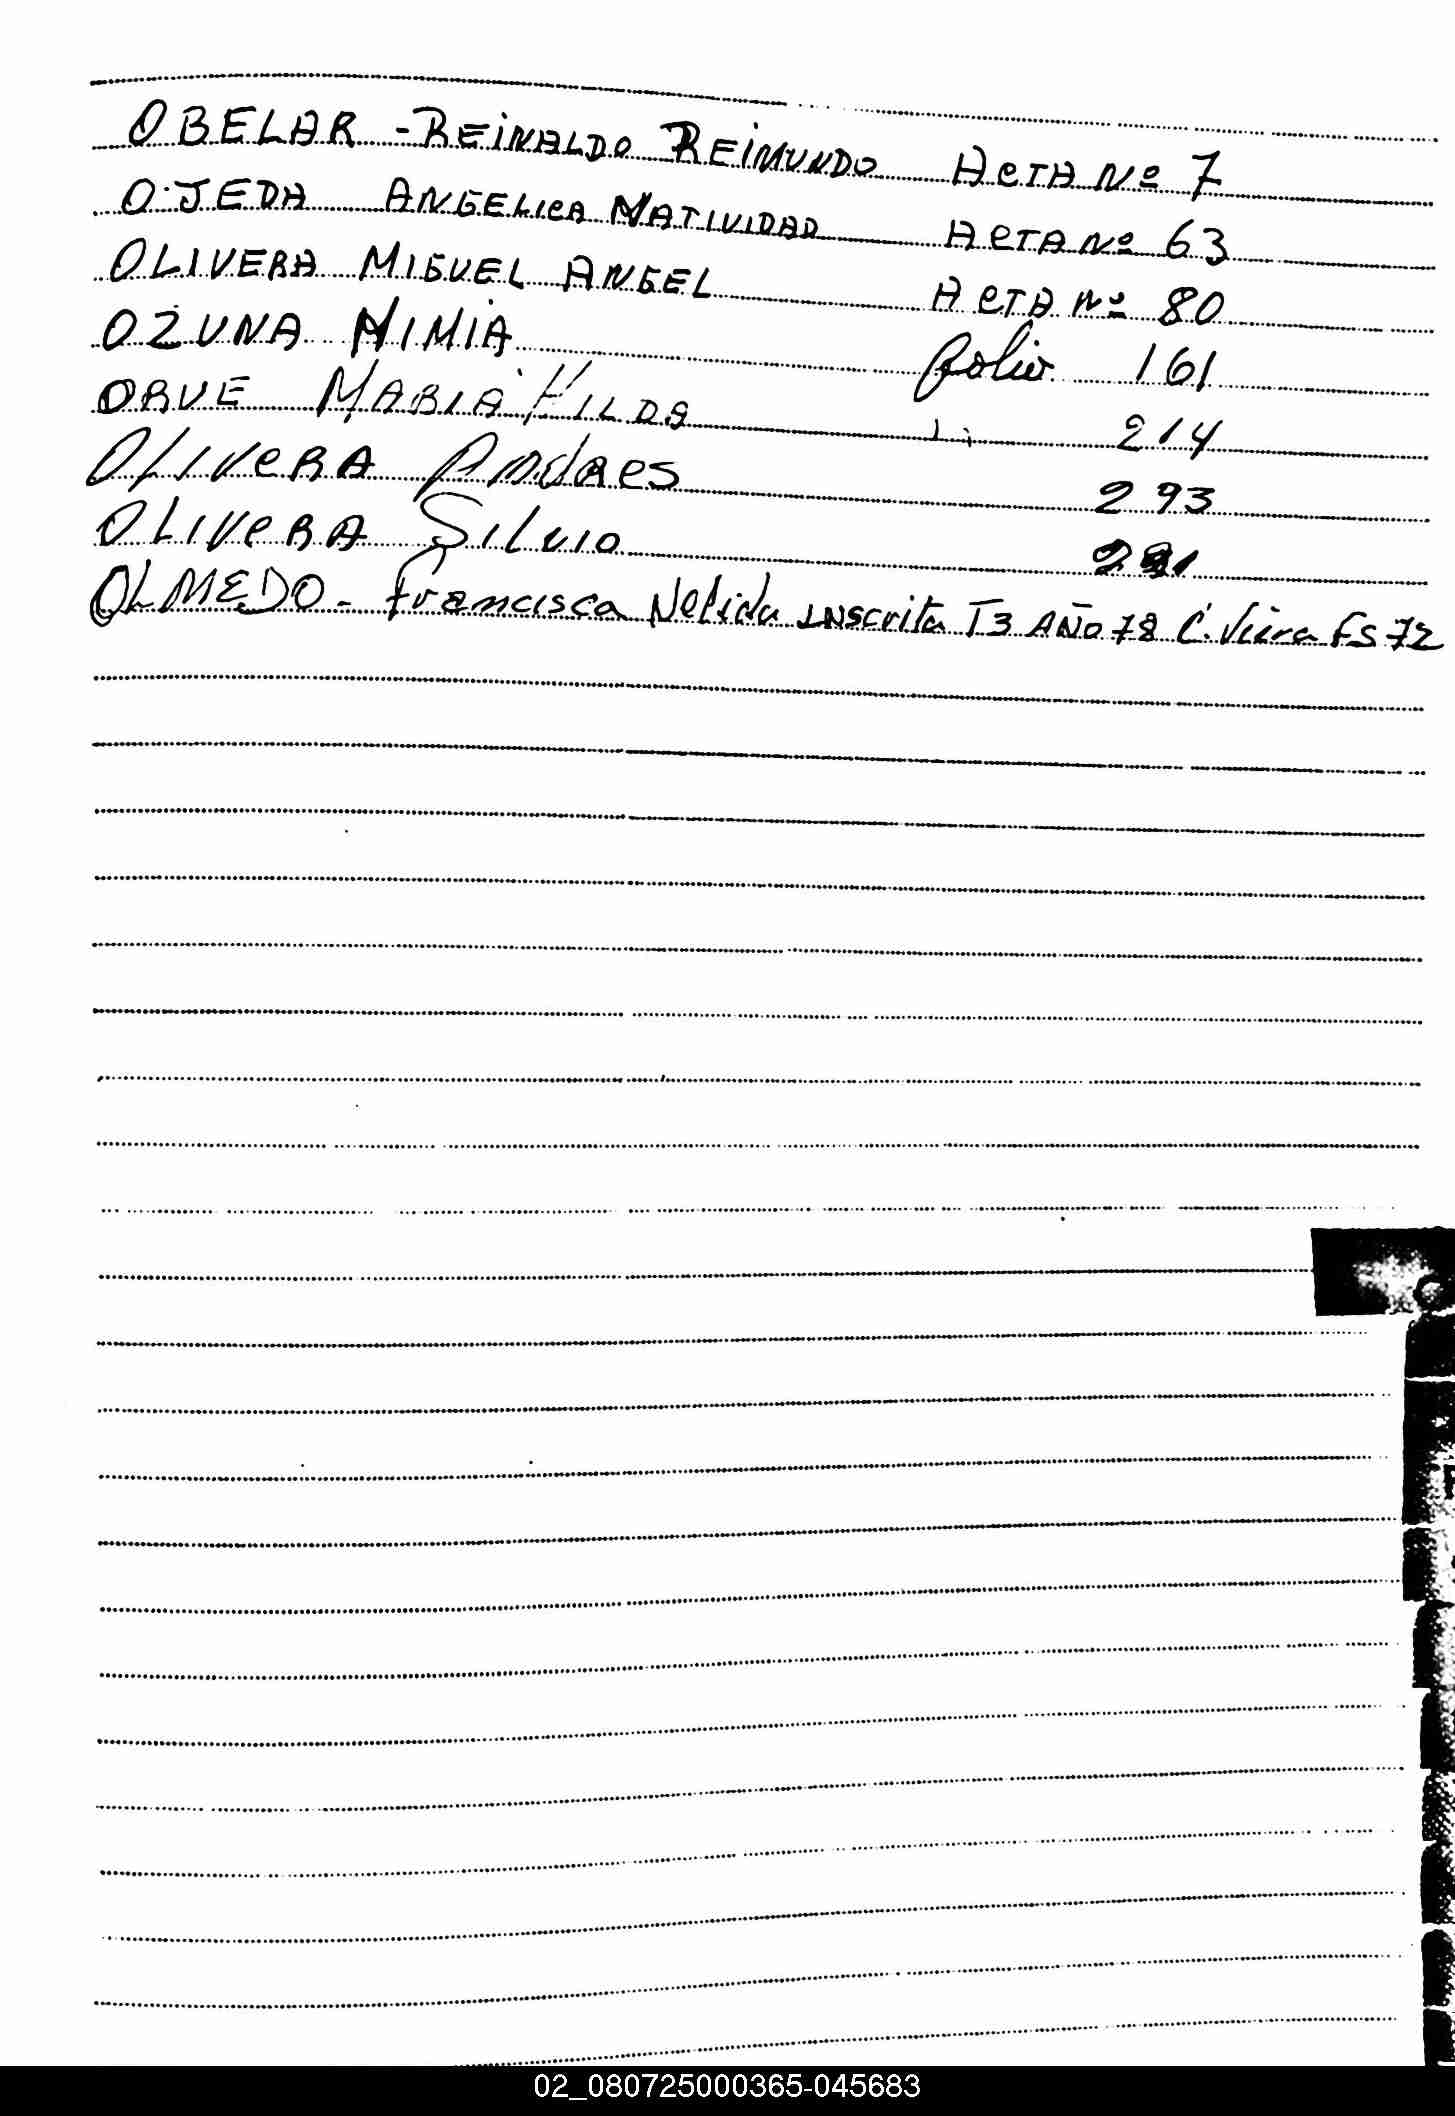 OBELAR - REINALDO REIMUNDO ACTA Nº 7
OJEDA ANGELICA NATIVIDAD ACTA Nº 63
OLIVERA MIGUEL ANGEL ACTA Nº 80
OZUNA MIMIA folio 161
ORUE MARIA HILDA " 214
OLIVERA Andres 293
OLIVERA Silvio
OLMEDO - Francisca Nelida INSCRITA T3 AÑO 78 C. Vièra Fs 72
02_080725000365-045683